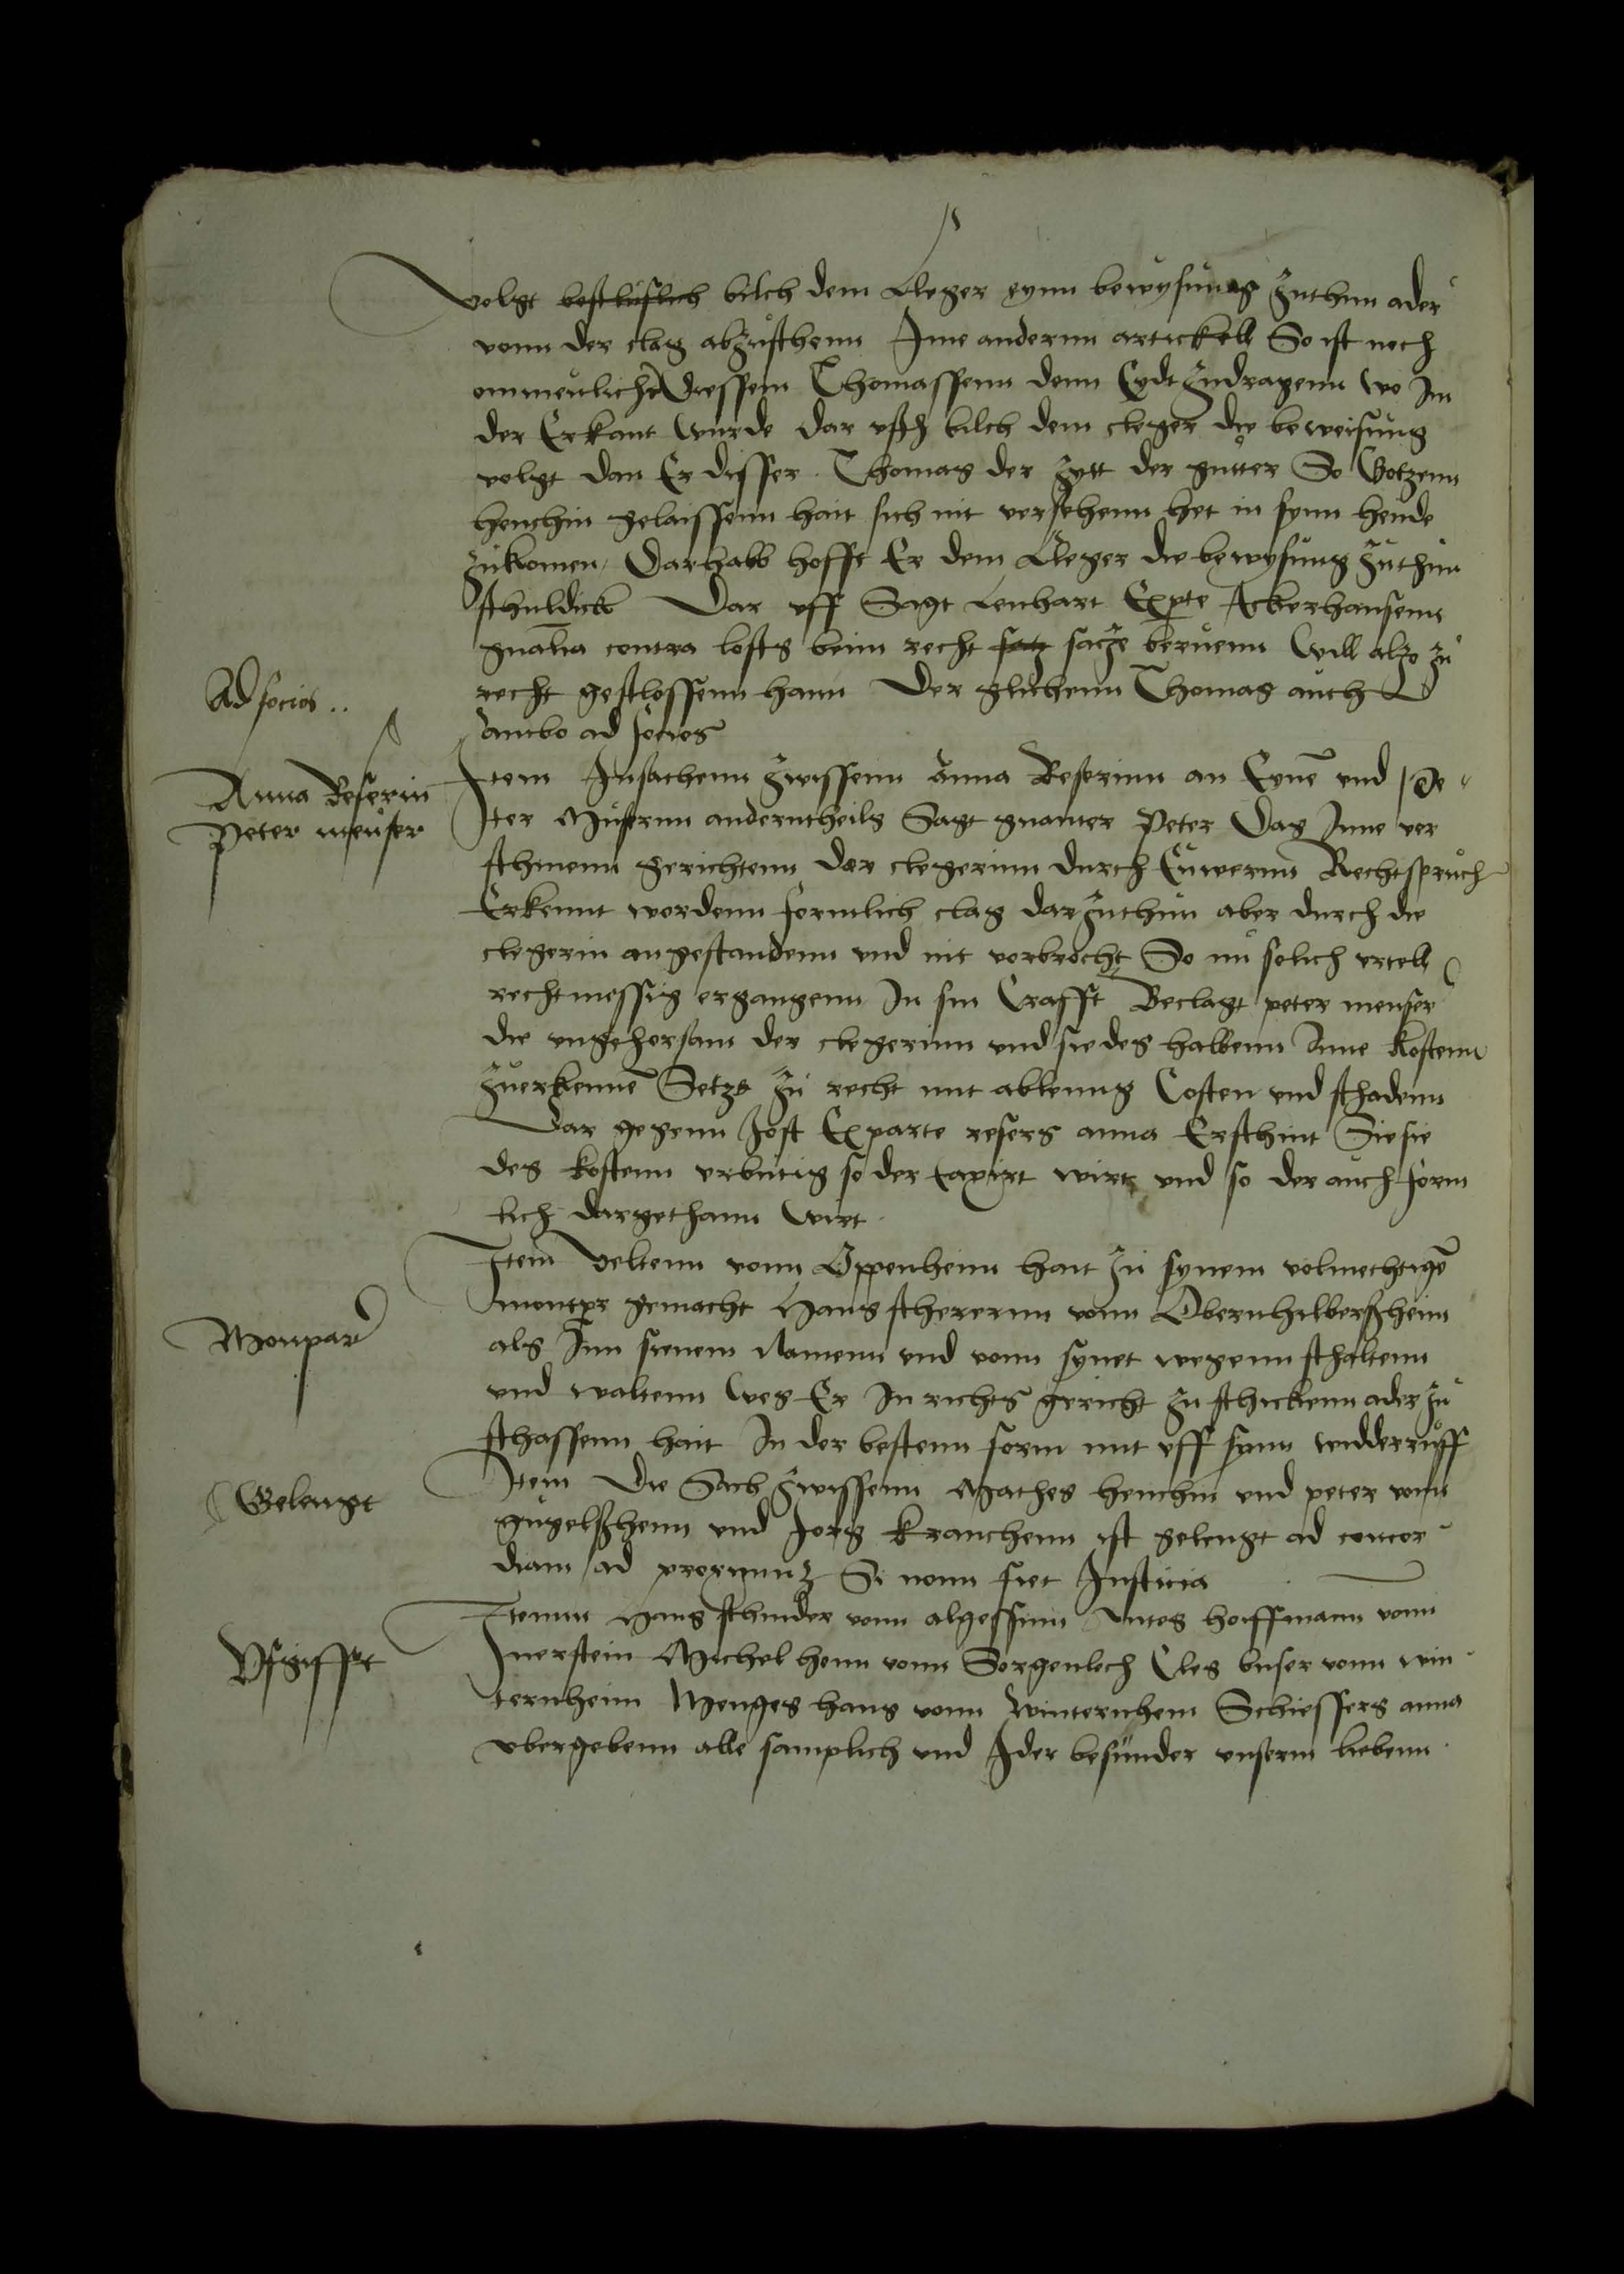 volgt beslüslich bilch dem Cleger eynn bewysunng zuthun ader
vonn der clag abzusthenn Inne andernn artickell So ist noch
ommeulicht diessem Thomassenn denn Eydt zudragenn wo Im
der Erkant wurde dar uß bilch dem cleger die beweisung
volgt dan Er disser Thomas der zytt der gutter So Gotzenn
henchin gelaissenn hait sich nit versehenn het in synn hende
zukomen / Darhalb hofft Er dem Cleger die bewysung zuthun
schuldick Dar uff Sagt Lenhart Exparte Ackerhansenn
gnalia contra lasts beim recht satz sacze beruenn Will alzo zu
recht geslossenn hann Der glichenn Thomas auch
ambo ad socios
Ad socios ..
Item Insachenn zwissenn Anna Reserinn an Eyne und Pe
ter Musernn anderntheils Sagt gnanter Peter Das Inne ver
Anna Reserin
Peter meuser
schinenn gerichtenn der clegerinn durch Euwernn Rechtspruch
Erkennt wordenn formlich clag darzuthun aber durch die
clegerin angestandenn und nit vorbrocht So nu solich ortell
rechtmessig ergangenn In sin Crafft Beclagt peter meuser
die ungehorsam der clegerinn und sie des halbenn Inne kostenn
zuerkenne Setzt zu recht mit ablenug Costen und schadenn
Dar gegenn Jost Exparte resers anna Ersthint Sie sie
des kostenn urbutig so der taxirt wirt und so der auch form
lich dargethann wirt
Item Veltenn vonn Oppenheim hait zu synem volmechtige
montpar gemacht Hans scherernn vonn Obernhilberßheim
Monpar
als Inn sienem Namenn und vonn synet wegenn schaltenn
und waltenn Wes Er In richts gericht zu schickenn ader zu
schaffenn hait In der bestenn form mit uff synn widderruff
Item Die Sach zwissenn Mathes henchin und peter vonn
Gelengt
gugelßhenn und Jorg kranchenn ist gelengt ad concor
diam / ad proximum Si nonn fiet Justicia
Itemm Hans schnider vonn algessinn Antes hoiffmann vonn
Vfgifft
Inerstein Michel henn vonn Sorgenloch Cles buser vonn win
ternheim Menges hans vonn Winternhem Schiessers anna
ubergebenn alle samplich und Ider besunder unserm liebenn